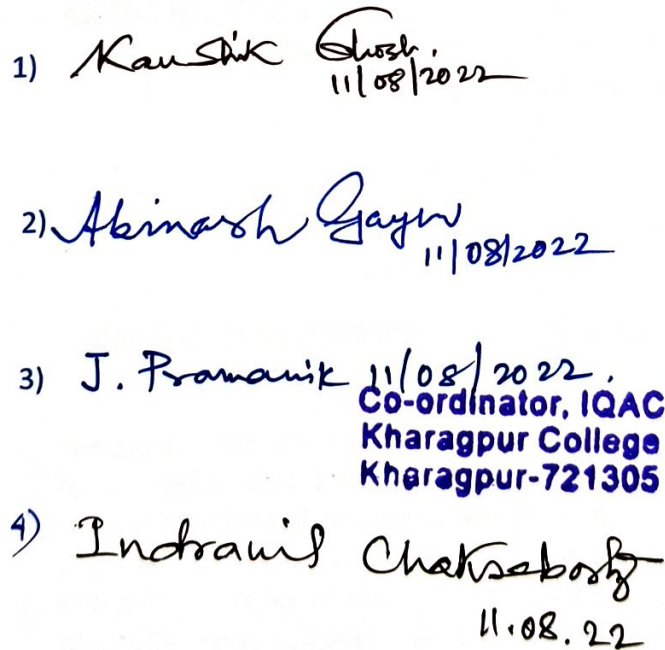 1) Kaushik Ghosh.
11/08/2022
2) Abinash Gayen
11/08/2022
3) J. Pramanik 11/08/2022.
Co-ordinator, IQAC
Kharagpur College
Kharagpur-721305
4) Indranil Chakraborty
11.08.22